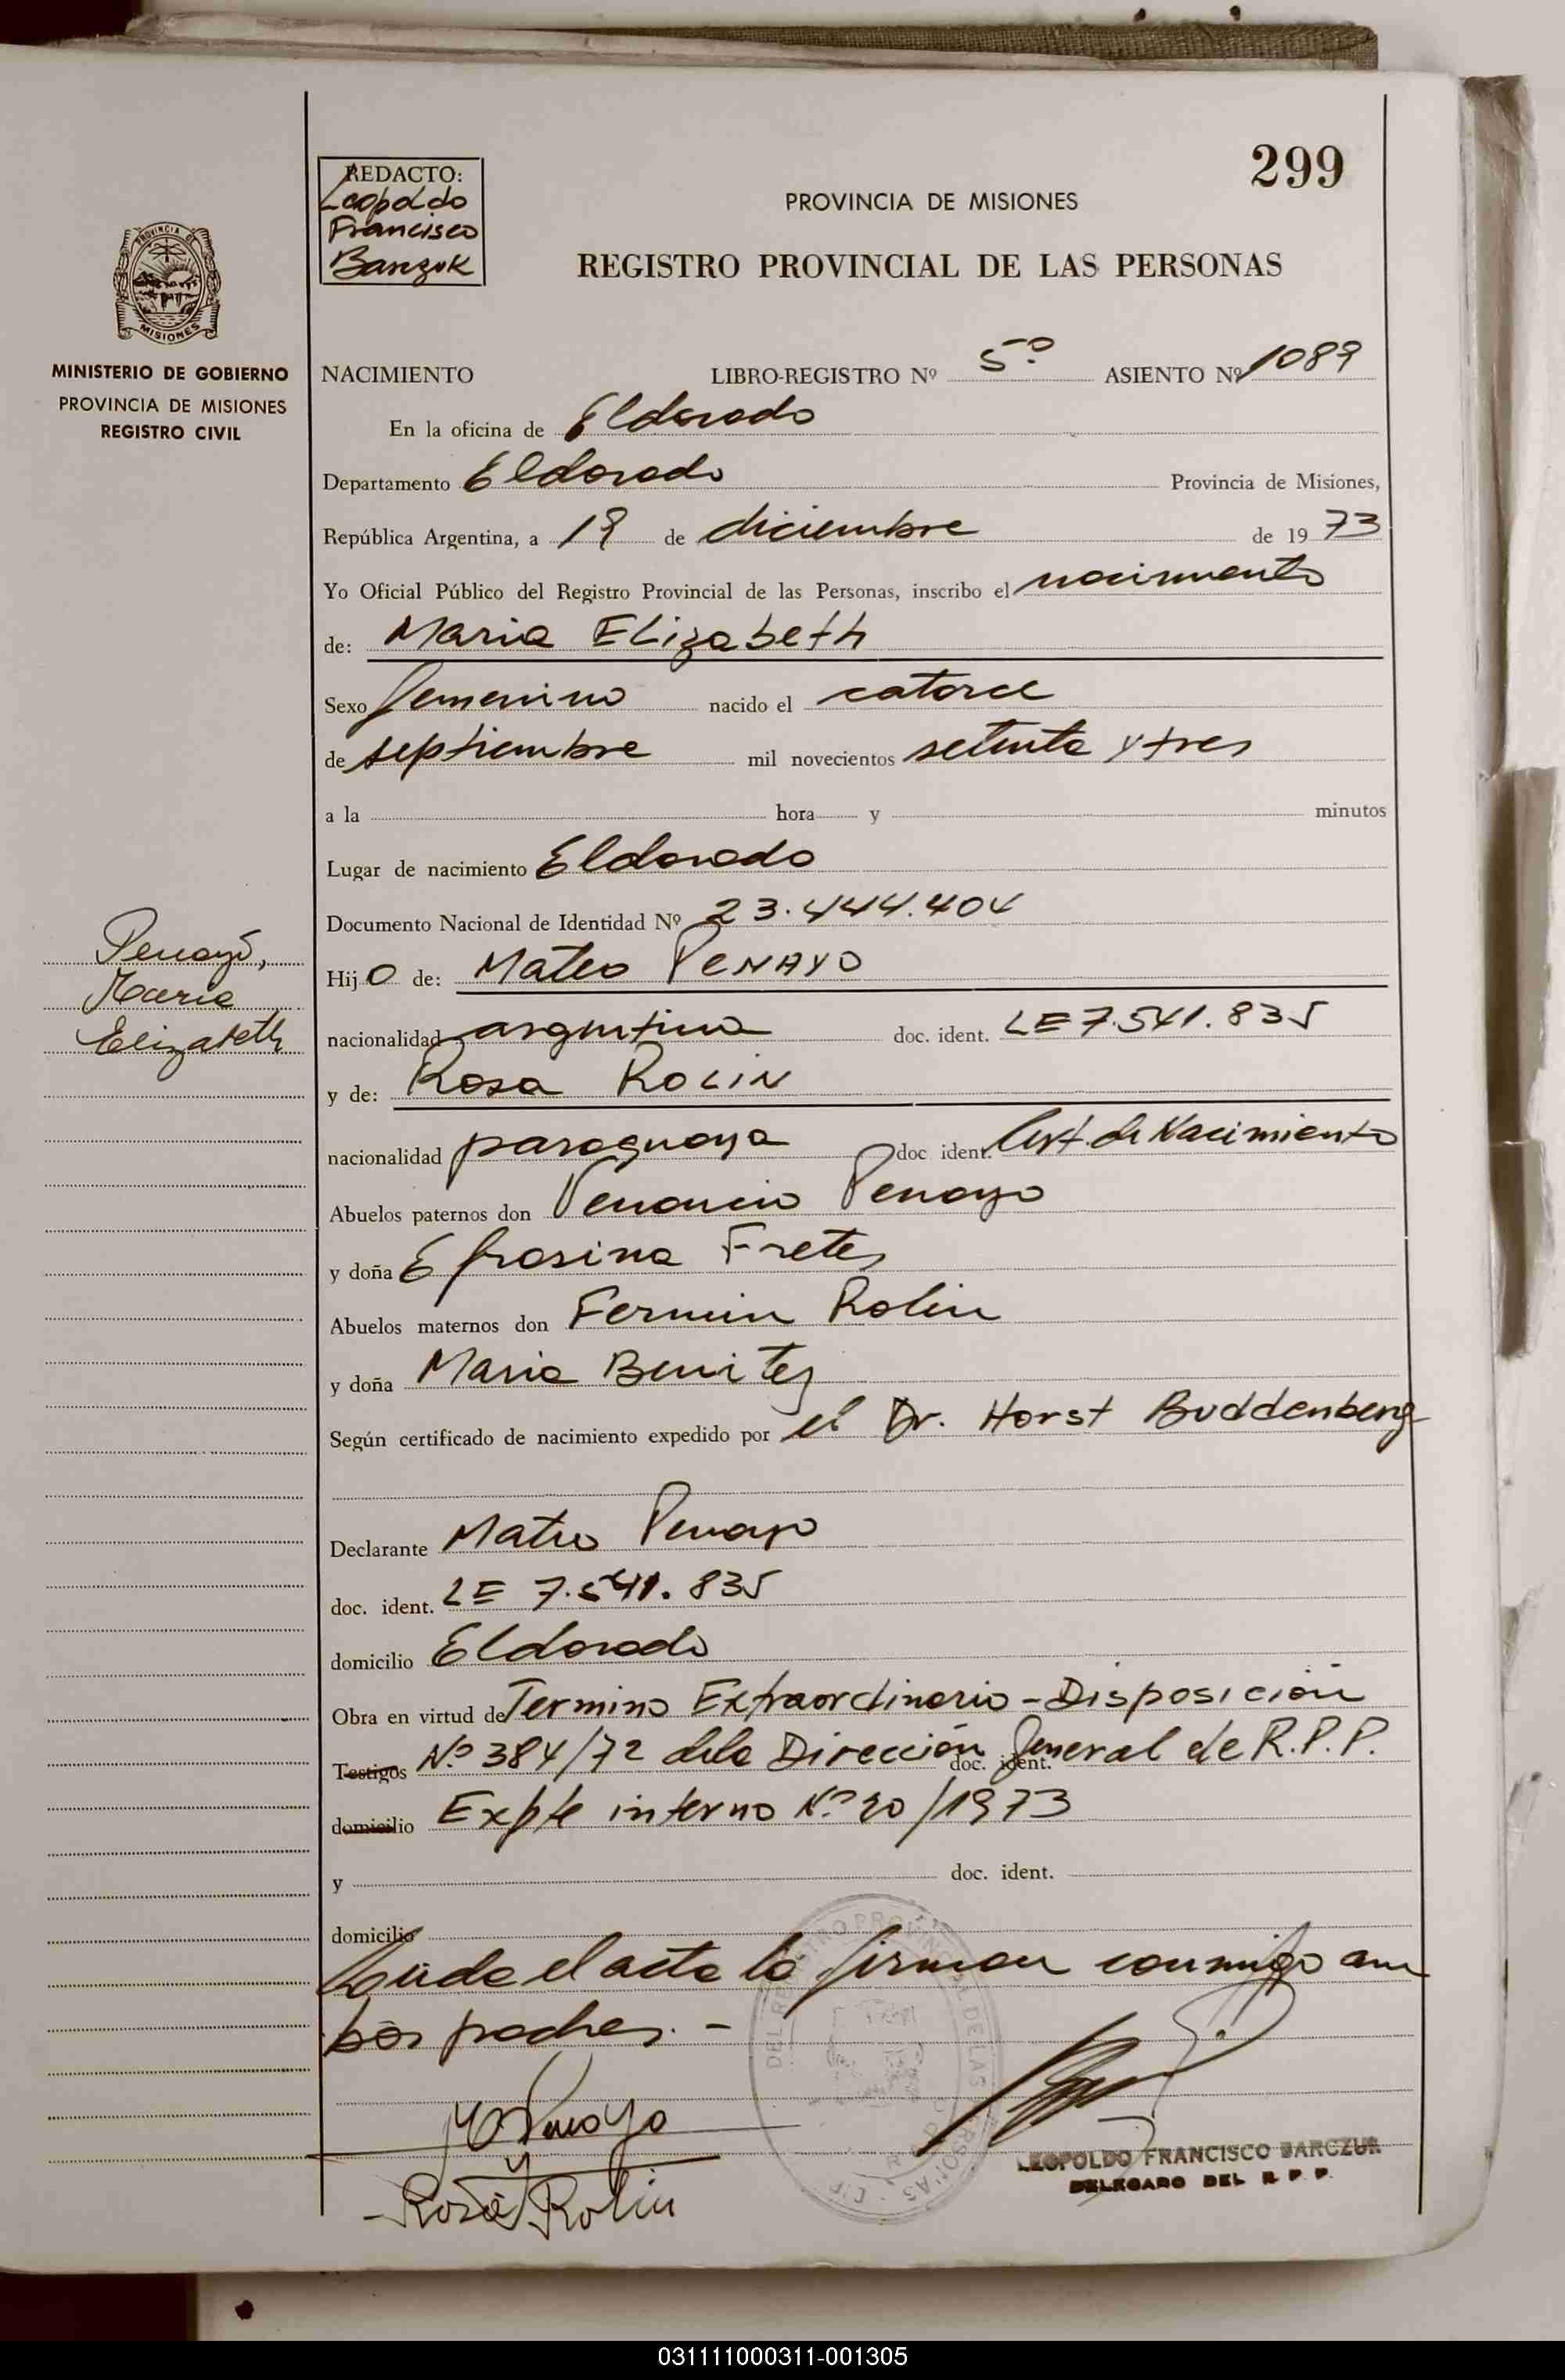 299
REDACTO:
Leopoldo
Francisco
Barczuk
PROVINCIA DE MISIONES
REGISTRO PROVINCIAL DE LAS PERSONAS
PROVINCIA DE
MISIONES
MINISTERIO DE GOBIERNO
PROVINCIA DE MISIONES
REGISTRO CIVIL
NACIMIENTO LIBRO-REGISTRO Nº 5º ASIENTO Nº 1089
En la oficina de Eldorado
Departamento Eldorado Provincia de Misiones,
República Argentina, a 19 de diciembre de 1973
Yo Oficial Público del Registro Provincial de las Personas, inscribo el nacimiento
de: Maria Elizabeth
Sexo femenino nacido el catorce
de septiembre mil novecientos setenta y tres
a la hora y minutos
Lugar de nacimiento Eldorado
Documento Nacional de Identidad Nº 23.444.404
Penayo,
Maria
Elizabeth
Hijo de: Mateo PENAYO
nacionalidad argentina doc. ident. LE 7.541.835
y de: Rosa ROLIN
nacionalidad paraguaya doc ident. Cert. de Nacimiento
Abuelos paternos don Venancio Penayo
y doña Efrosina Fretes
Abuelos maternos don Fermin Rolin
y doña Maria Benitez
Según certificado de nacimiento expedido por el Dr. Horst Buddenberg
Declarante Mateo Penayo
doc. ident. LE 7.541.835
domicilio Eldorado
Obra en virtud de Termino Extraordinario - Disposición
Testigos Nº 384/72 de la Dirección doc. ident. General de R.P.P.
domicilio Expte interno Nº 20/1973
y doc. ident.
domicilio
Leida el acta la firman conmigo am
bos padres. -
M Penayo
Rosa Rolin
LEOPOLDO FRANCISCO BARCZUK
DELEGADO DEL R. P. P.
031111000311-001305